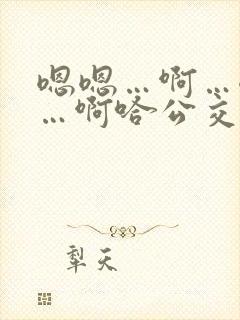 嗯嗯…啊…
…啊哈公交
犁天